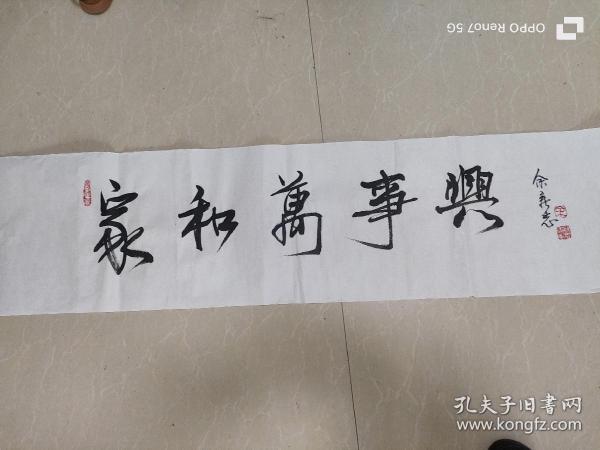 OPPO Reno7 5G
家和萬事興
余新志
孔夫子旧书网
www.kongfz.com